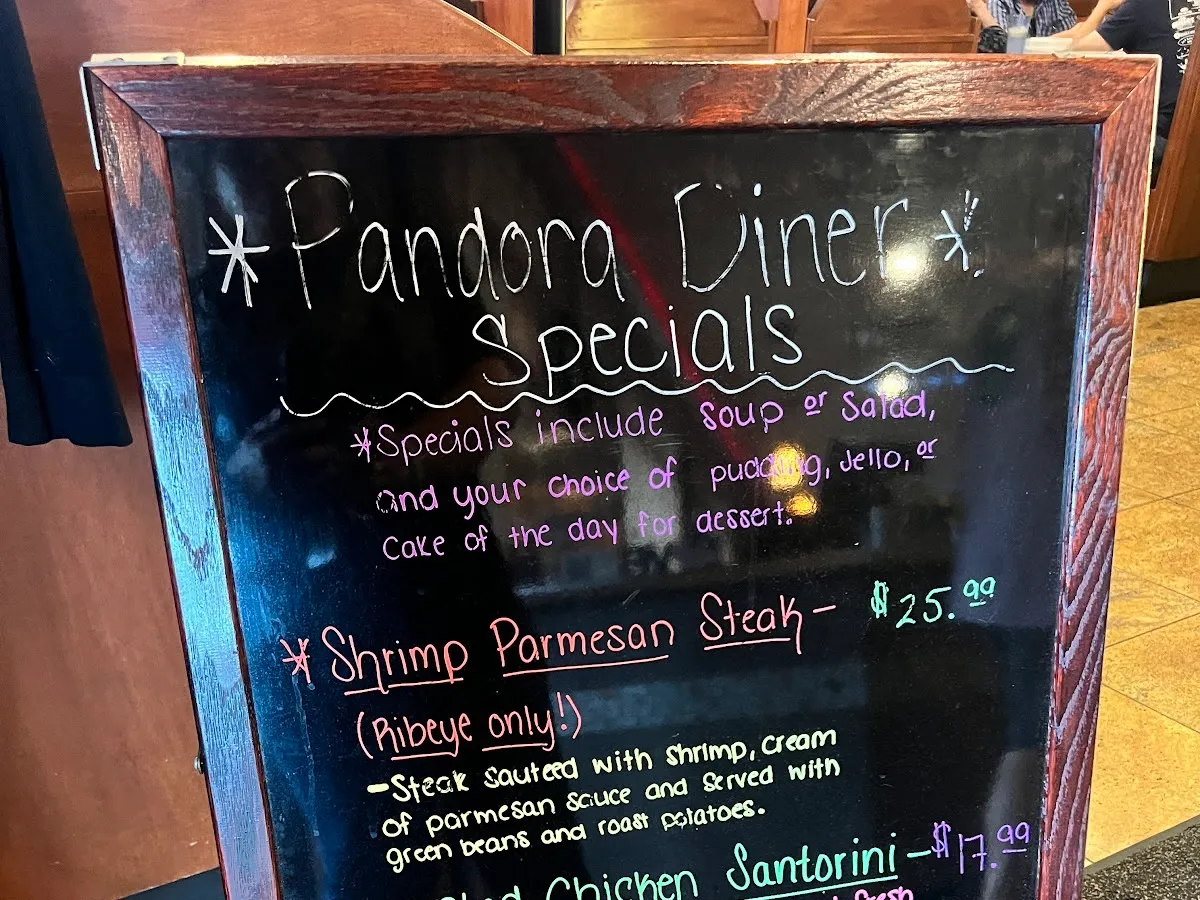 *Pandora Diner*
Specials
*Specials include soup or Salad,
and your choice of pudding, Jello, or
cake of the day for dessert.
*Shrimp Parmesan Steak - $25.99
(Ribeye only!)
-Steak Sauteed with Shrimp, cream
of parmesan sauce and served with
green beans and roast potatoes.
Chicken Santorini - $17.99
fresh